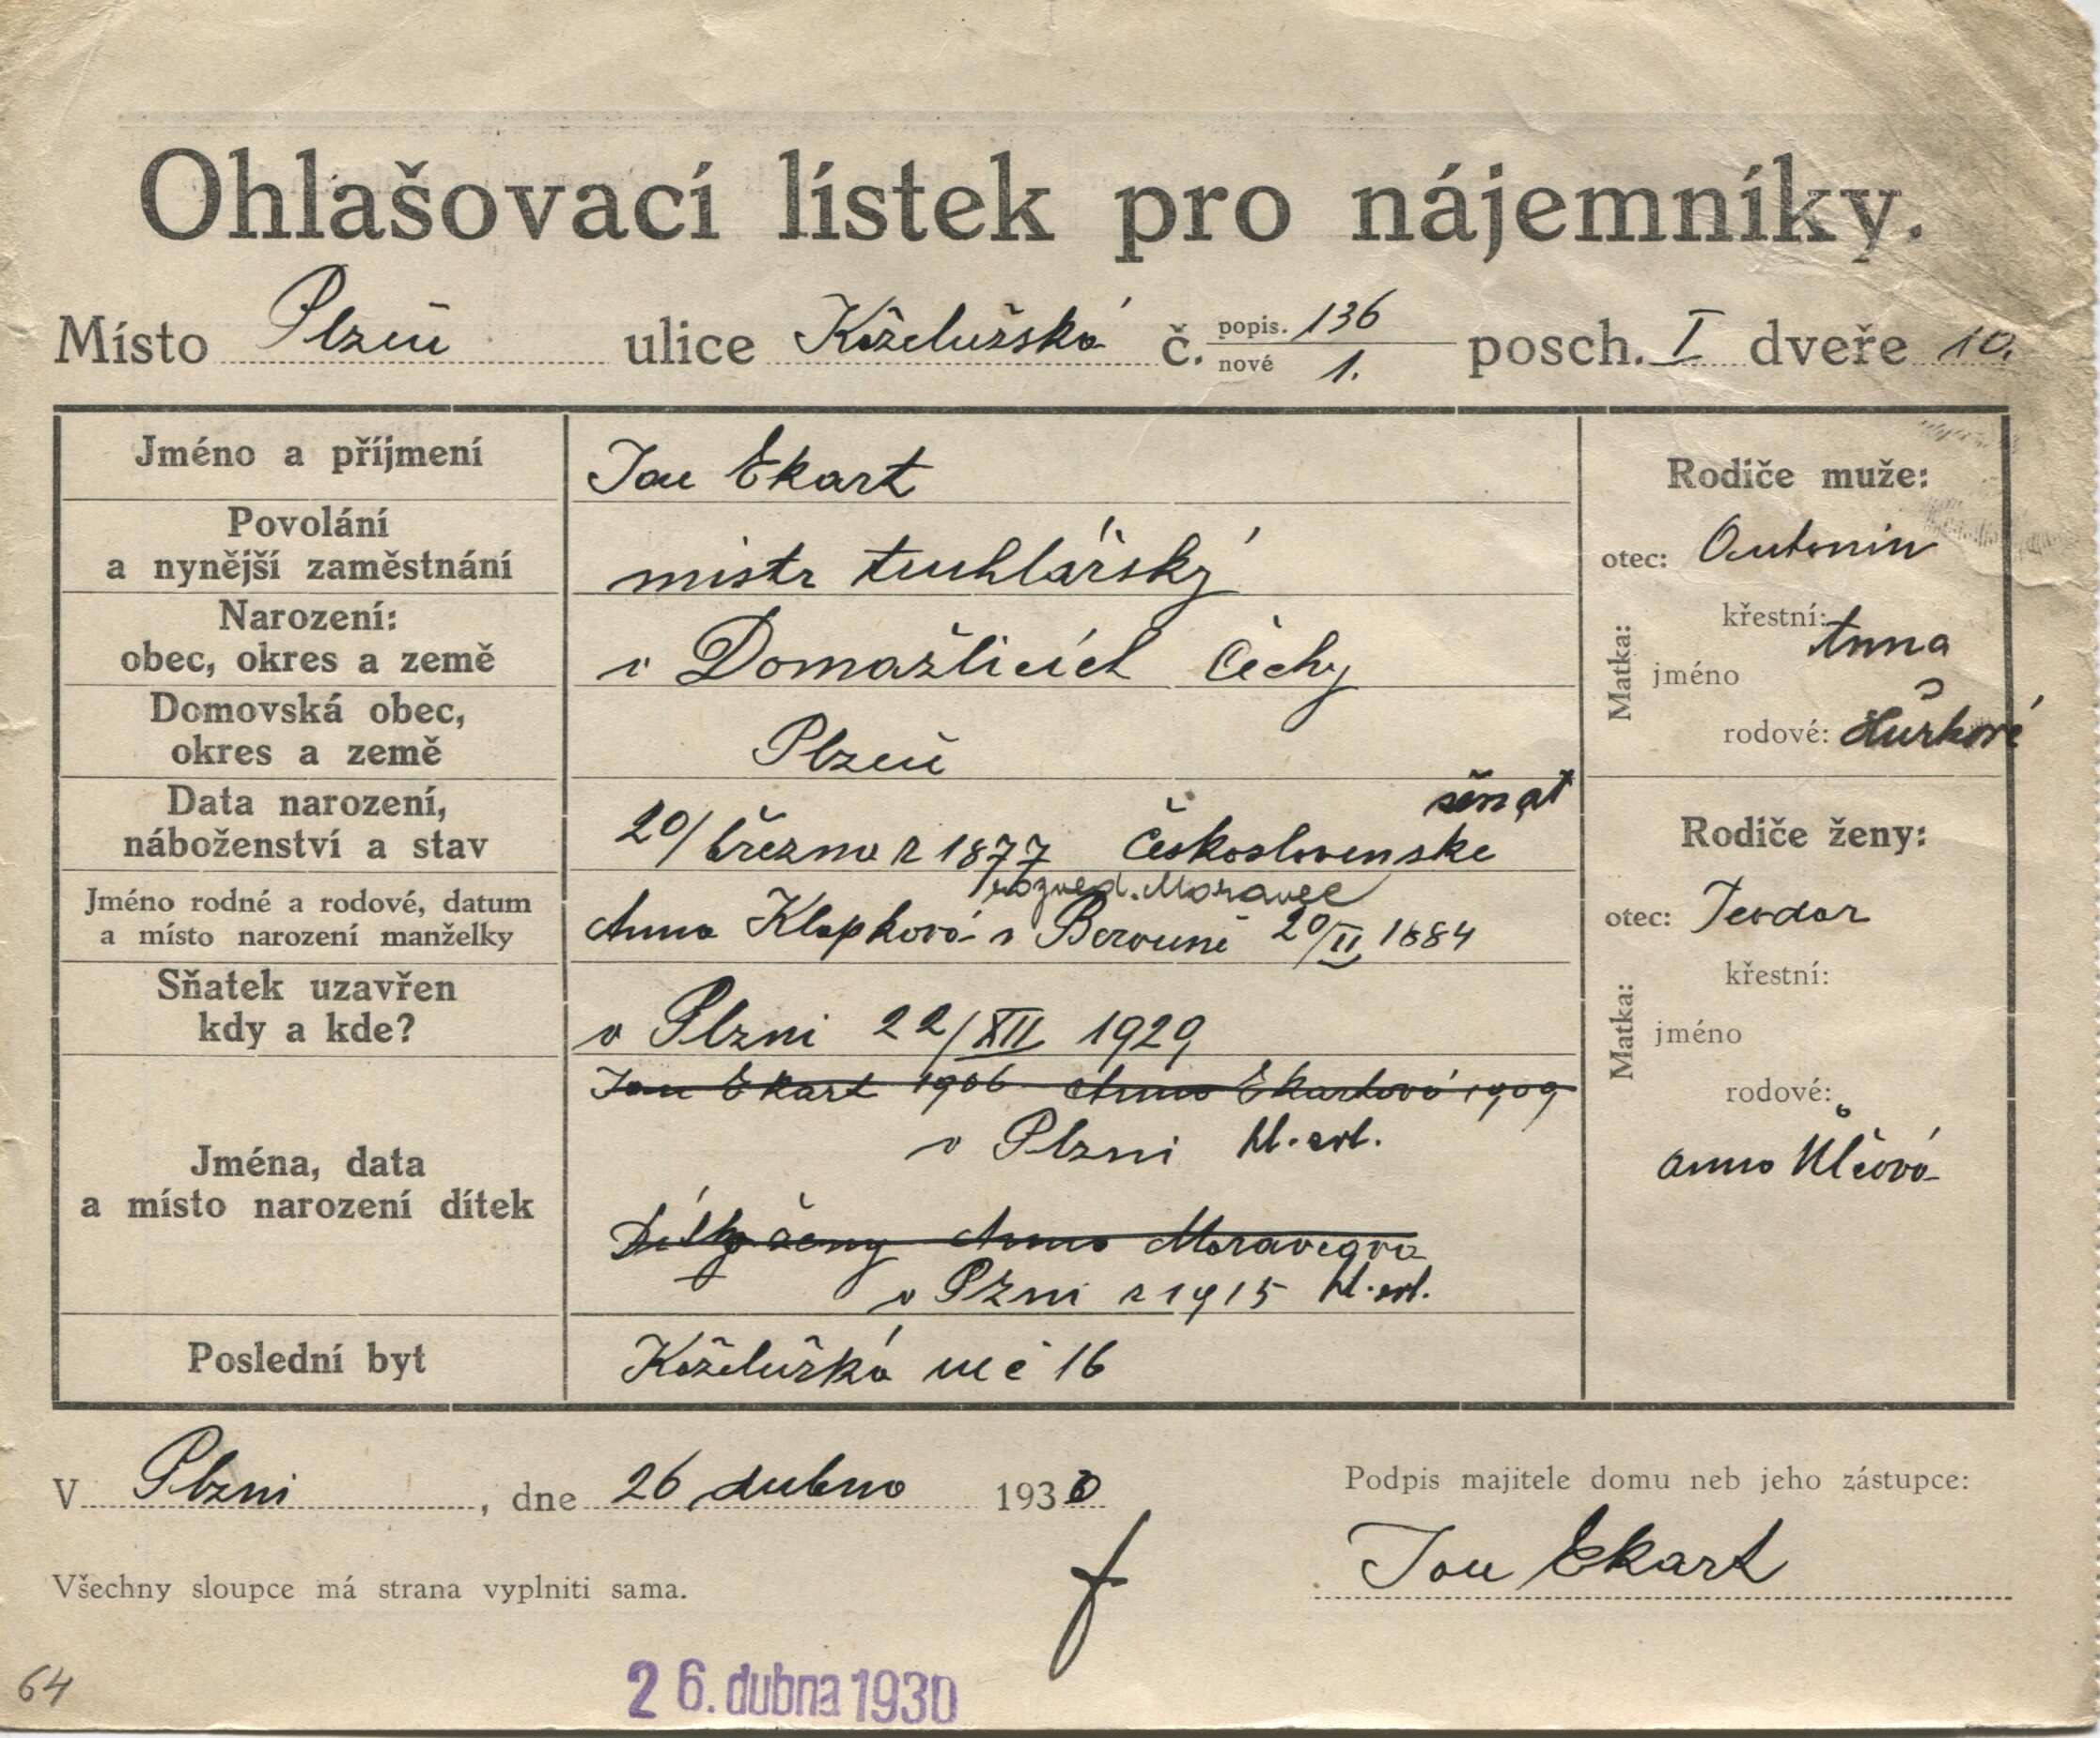 Ohlašovací lístek pro nájemníky.
Místo Plzeň ulice Koželužská č. popis. 136 posch. I dveře 10.
nové 1.
Jméno a příjmení
Jan Ekart
Povolání
a nynější zaměstnání
mistr truhlářský
Narození:
obec, okres a země
v Domažlicích Čechy
Domovská obec,
okres a země
Plzeň
Data narození,
náboženství a stav
20/března r 1877 Československé
ženat
Jméno rodné a rodové, datum
a místo narození manželky
rozved. Moravec
Anna Klapková v Berouně 20/II 1884
Sňatek uzavřen
kdy a kde?
v Plzni 22/XII 1929
Jména, data
a místo narození dítek
Jan Ekart 1906 Anna Ekartová 1909
v Plzni hl. zvl.
Dítky ženy Anna Moravcová
v Plzni r 1915 hl. zvl.
Poslední byt
Koželužká ul č 16
Rodiče muže:
otec: Antonin
Matka:
křestní: Anna
jméno
rodové:
Rodiče ženy:
otec: Teodor
Matka:
křestní:
jméno
rodové:
Anna
V Plzni, dne 26 dubna 1930
Podpis majitele domu neb jeho zástupce:
Jan Ekart
Všechny sloupce má strana vyplniti sama.
64
26. dubna 1930